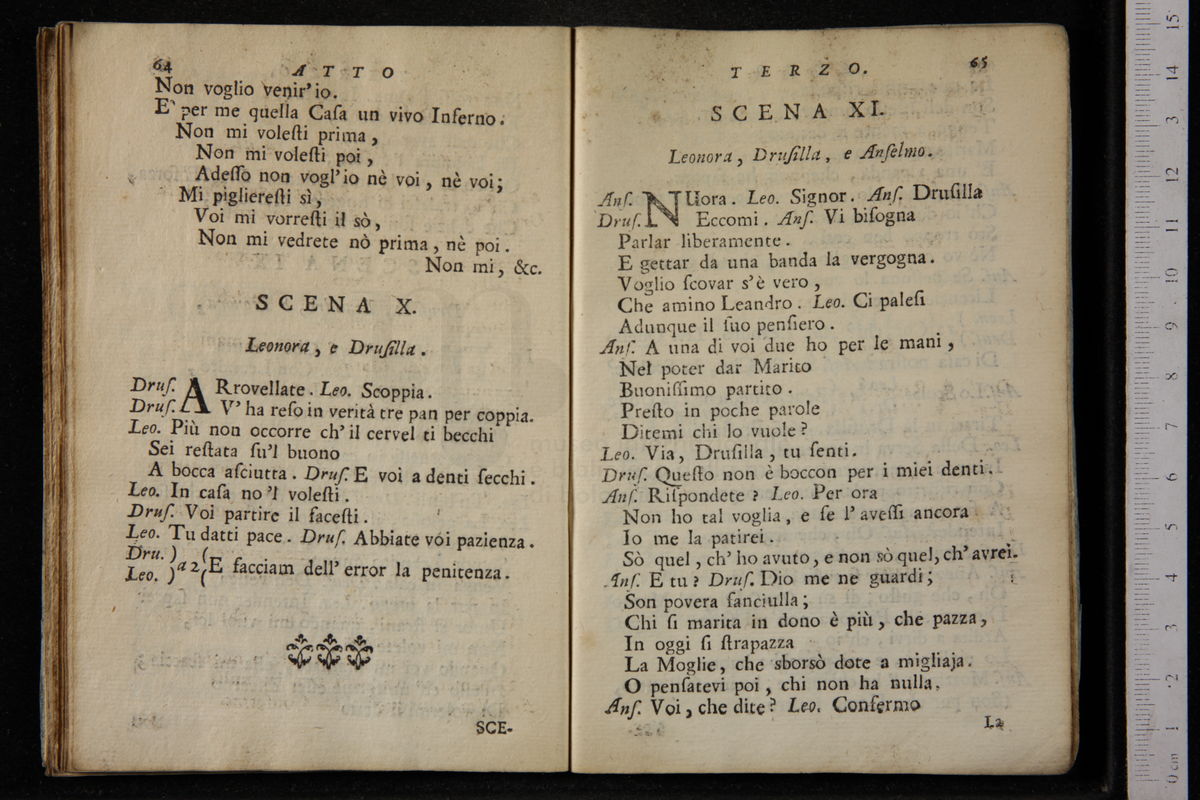 64
ATTO
Non voglio venir' io.
E' per me quella Caſa un vivo Inferno.
Non mi voleſti prima,
Non mi voleſti poi,
Adeſſo non vogl' io nè voi, nè voi;
Mi pigliereſti sì,
Voi mi vorreſti il sò,
Non mi vedrete nò prima, nè poi.
Non mi, &c.
SCENA X.
Leonora, e Druſilla.
Druſ. ARrovellate. Leo. Scoppia.
Druſ. V' ha reſo in verità tre pan per coppia.
Leo. Più non occorre ch' il cervel ti becchi
Sei reſtata ſu'l buono
A bocca aſciutta. Druſ. E voi a denti ſecchi.
Leo. In caſa no'l voleſti.
Druſ. Voi partire il faceſti.
Leo. Tu datti pace. Druſ. Abbiate voi pazienza.
Dru. ) (
Leo. ) a 2 ( E facciam dell' error la penitenza.
SCE-
TERZO.
65
SCENA XI.
Leonora, Druſilla, e Anſelmo.
Anſ. NUora. Leo. Signor. Anſ. Druſilla
Druſ. Eccomi. Anſ. Vi biſogna
Parlar liberamente.
E gettar da una banda la vergogna.
Voglio ſcovar s'è vero,
Che amino Leandro. Leo. Ci paleſi
Adunque il ſuo penſiero.
Anſ. A una di voi due ho per le mani,
Nel poter dar Marito
Buoniſſimo partito.
Preſto in poche parole
Ditemi chi lo vuole?
Leo. Via, Druſilla, tu ſenti.
Druſ. Queſto non è boccon per i miei denti.
Anſ. Riſpondete? Leo. Per ora
Non ho tal voglia, e ſe l' aveſſi ancora
Io me la patirei.
Sò quel, ch' ho avuto, e non sò quel, ch' avrei.
Anſ. E tu? Druſ. Dio me ne guardi;
Son povera fanciulla;
Chi ſi marita in dono è più, che pazza,
In oggi ſi ſtrapazza
La Moglie, che sborsò dote a migliaja.
O penſatevi poi, chi non ha nulla.
Anſ. Voi, che dite? Leo. Confermo
La